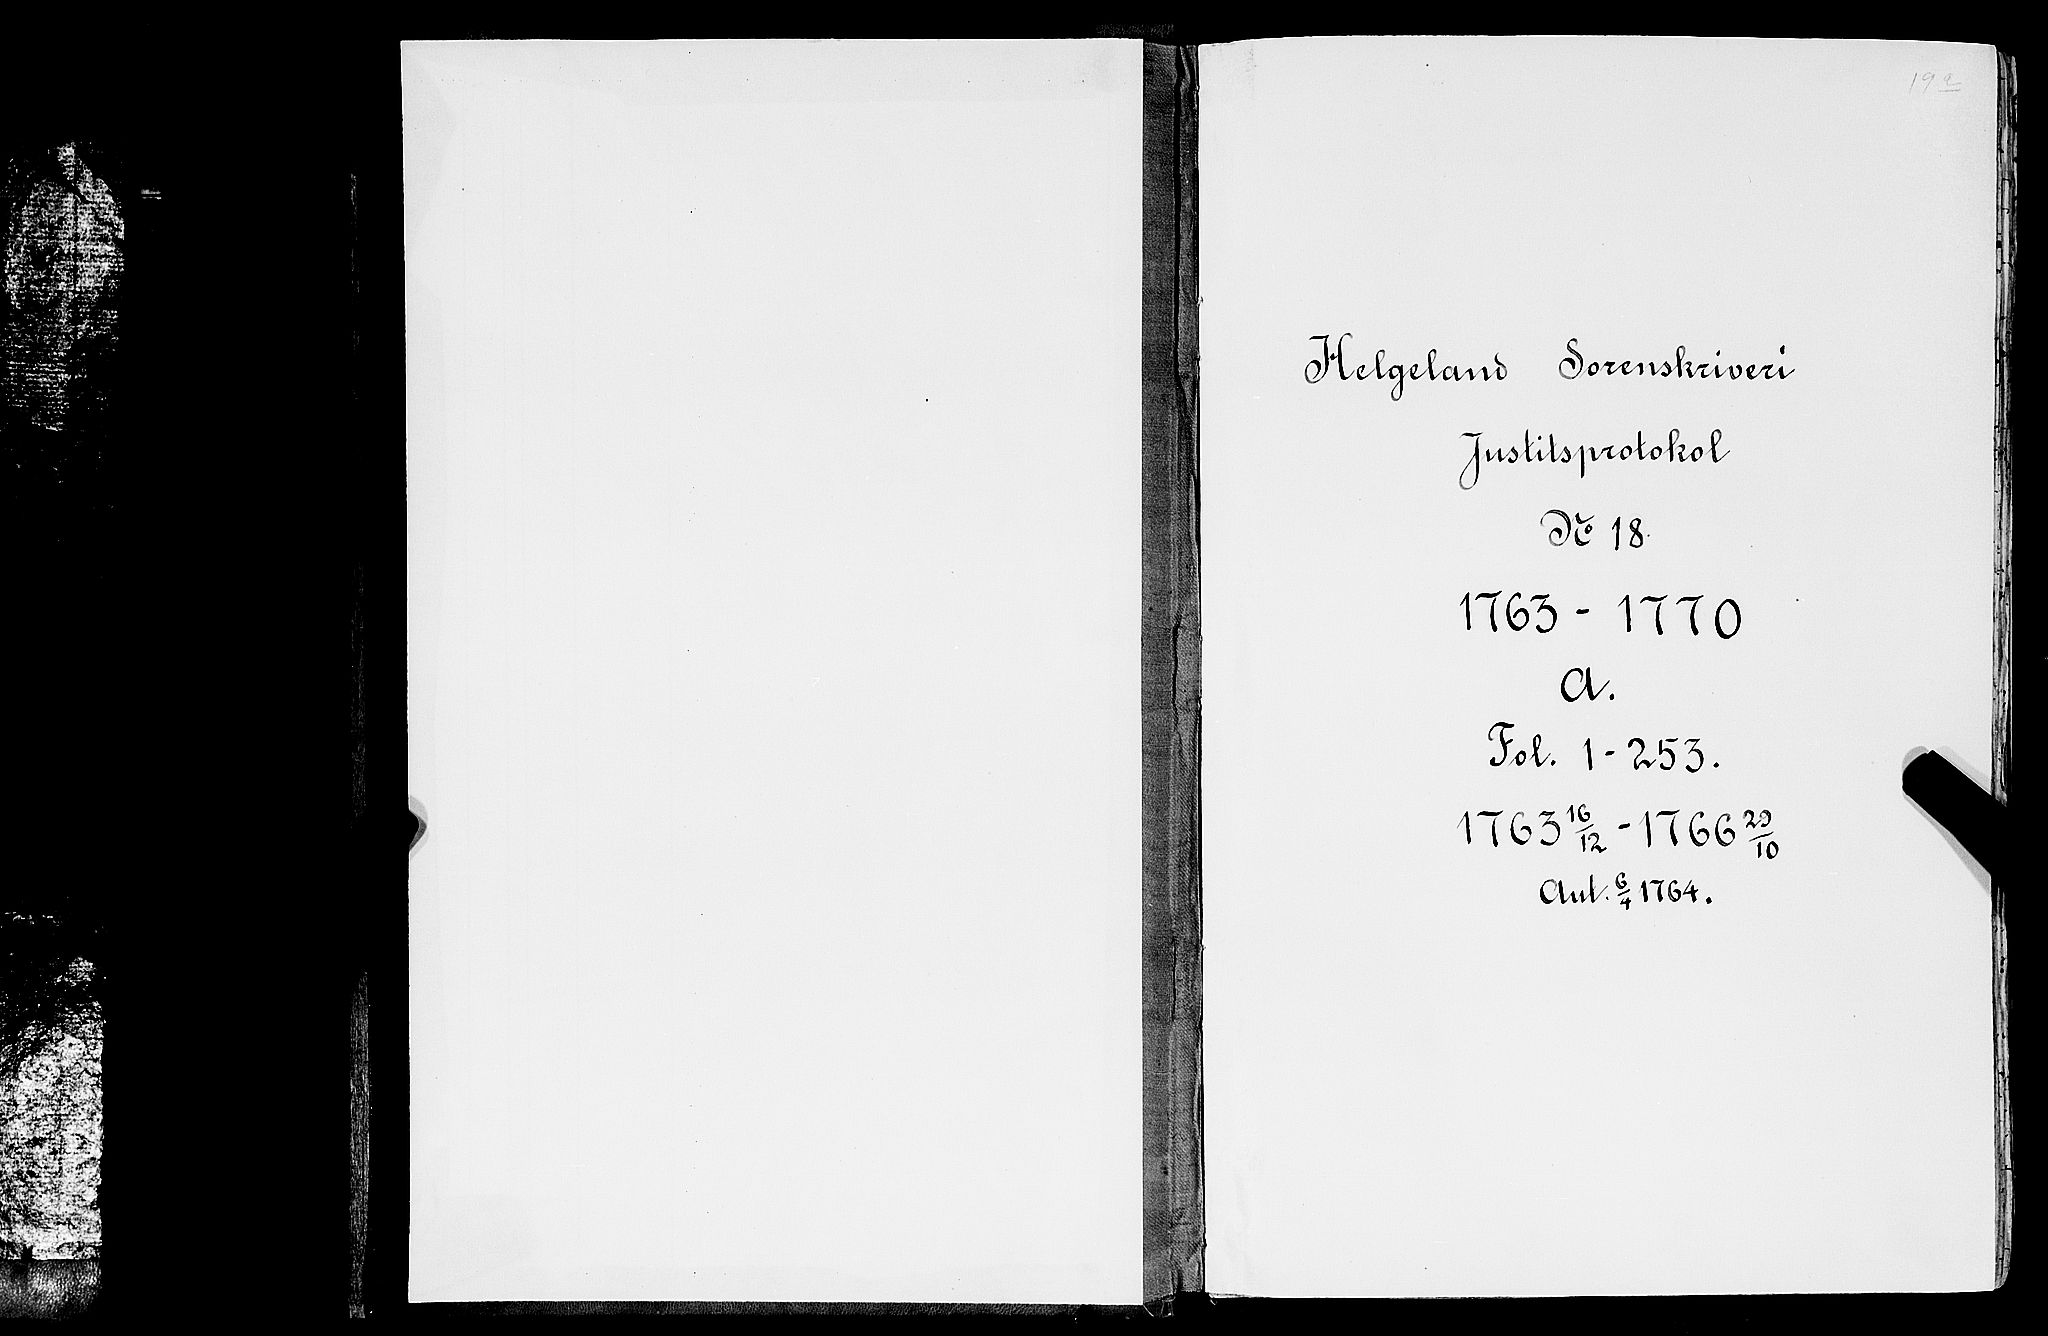 19a
Helgeland Sorenskriveri
Justitsprotokol
No 18.
1763 - 1770
A.
Fol. 1 - 253.
1763 16/12 - 1766 29/10
Aut. 6/4 1764.